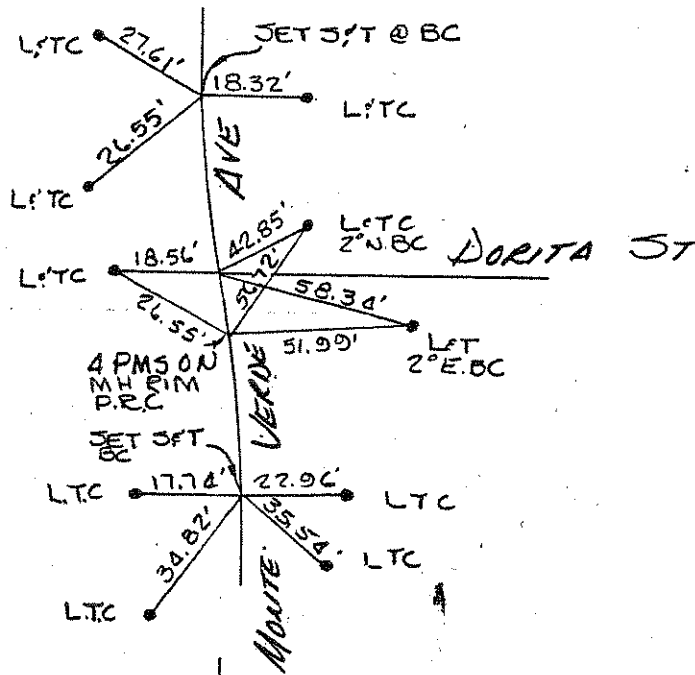 L&TC
27.61'
SET S&T @ BC
18.32'
L&TC
26.55'
L&TC
AVE
L&TC
2° N. BC
42.85'
18.56'
L&TC
DORITA ST
56.72'
58.34'
26.55'
51.99'
L&T
2° E. BC
4 PMS ON
MH RIM
P.R.C
VERDE
SET S&T
BC
L.T.C
17.74'
22.96'
LTC
34.82'
35.54'
LTC
L.T.C
MONTE